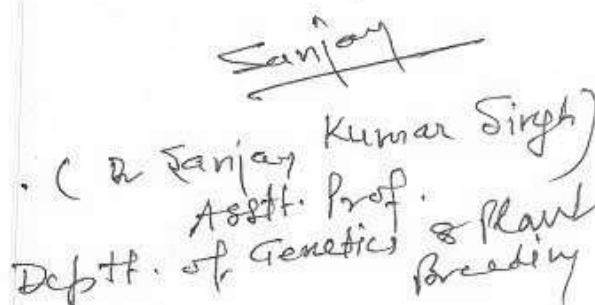 Sanjay
. ( Dr Sanjay Kumar Singh)
Asstt. Prof.
Deptt. of Genetics & Plant
Breeding